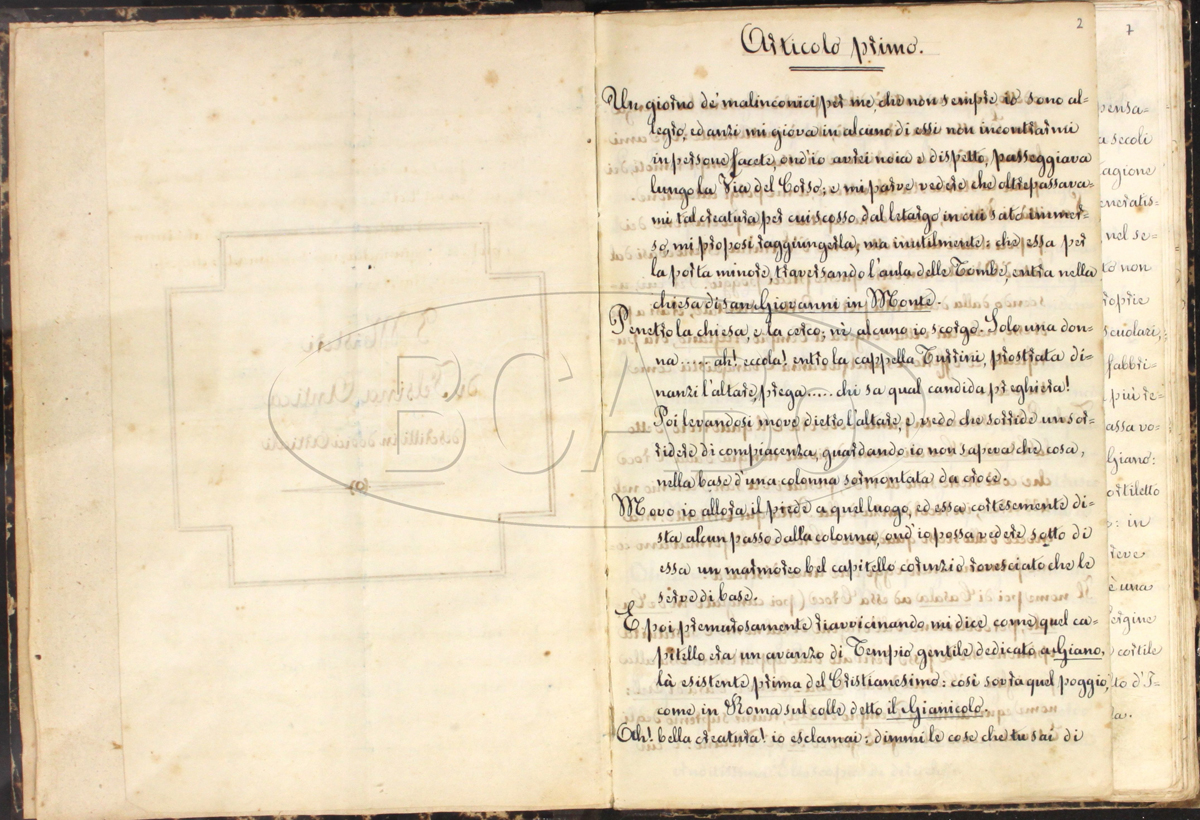 2
Articolo primo.
Un giorno de' malinconici per me, che non sempre io sono al=
legro, ed anzi mi giova in alcuno di essi non incontrarmi
in persone facete, ond'io avrei noia e dispetto, passeggiava
lungo la Via del Corso; e mi parve vedere che oltrepassava=
mi tal creatura per cui scosso dal letargo in cui sato immer=
so, mi proposi raggiungerla, ma inutilmente: che essa per
la porta minore, traversando l'aula delle Tombe, entra nella
chiesa di san Giovanni in Monte.
Penetro la chiesa, e la cerco; nè alcuno io scorgo. Solo una don=
na ..... ah! eccola! entro la cappella Turrini, prostrata di=
nanzi l'altare, prega ..... chi sa qual candida preghiera!
Poi levandosi move dietro l'altare, e vedo che sorride un sor=
ridere di compiacenza, guardando io non sapeva che cosa,
nella base d'una colonna sormontata da croce.
Movo io allora il piede a quel luogo, ed essa cortesemente di=
sta alcun passo dalla colonna, ond'io possa vedere sotto di
essa un marmoreo bel capitello corinzio rovesciato che le
serve di base.
E poi premurosamente riavvicinando mi dice, come quel ca=
pitello era un avanzo di Tempio gentile dedicato a Giano,
là esistente prima del Cristianesimo: così sovra quel poggio,
come in Roma sul colle detto il Gianicolo.
Ah! bella creatura! io esclamai: dimmi le cose che tu sai di
7
pensa=
a secoli
agione
neratis=
nel se=
to non
roprie
scuolari,
fabbri=
più re=
assa vo=
Giano:
ortiletto
: in
reve
è una
ergine
cortile
to d'I=
la.
BCAB